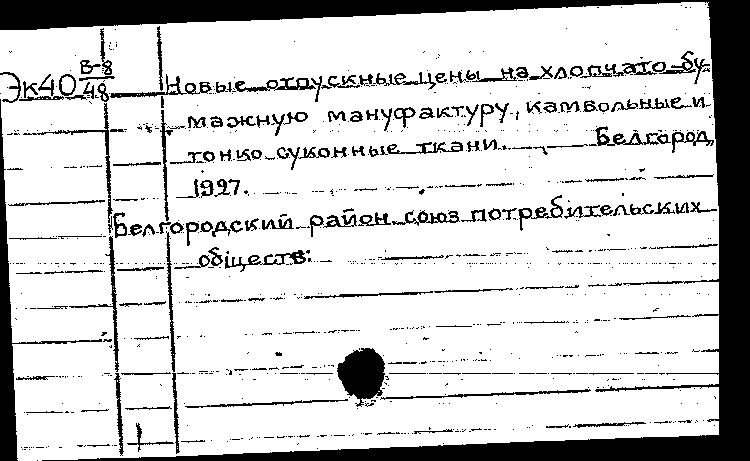 Эк40 В-8/48 Новые отпускные цены на хлопчато-бу-
мажную мануфактуру, камвольные и
тонко суконные ткани. Белгород,
1927.
Белгородский район. союз потребительских
обществ: